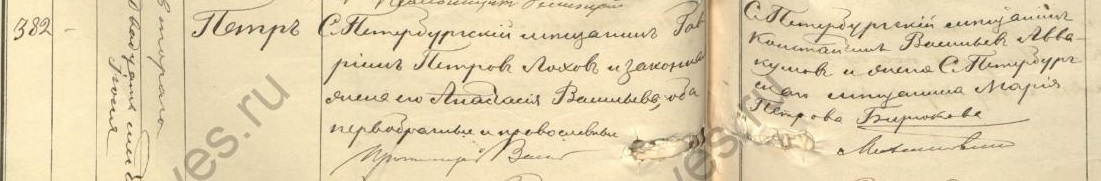 382
Двадцать седьм
Іюня
Втораго
Петръ
С.Петербургскій мѣщанинъ Гав-
ріилъ Петровъ Лоховъ и законная
жена его Анастасія Васильева, оба
первобрачные и православные
Протоіерей
С.Петербургскій мѣщанинъ
Константинъ Васильевъ Авва-
кумовъ и жена С.Петербург
скаго мѣщанина Марія
Петрова Бирюкова
ves.ru
ves